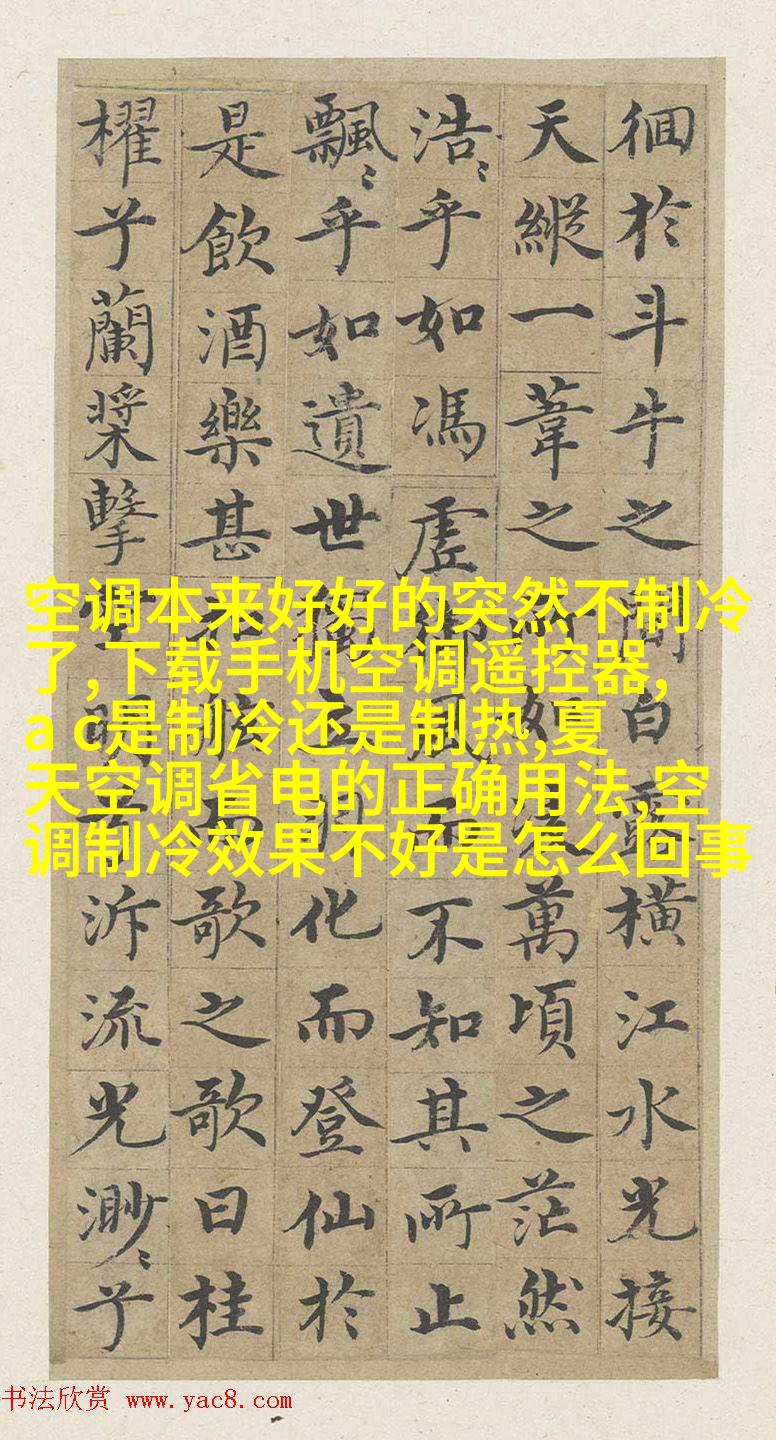 徊於斗牛之間白露橫江水光接
天縱一葦之所如凌萬頃之茫然
浩〻乎如馮虛御風而不知其所止
飄〻乎如遺世獨立羽化而登仙於
是飲酒樂甚扣舷而歌之歌曰桂
櫂兮蘭槳擊空明兮泝流光渺〻兮
空调本来好好的突然不制冷
了,下载手机空调遥控器,
a c是制冷还是制热,夏
天空调省电的正确用法,空
调制冷效果不好是怎么回事
书法欣赏 www.yac8.com